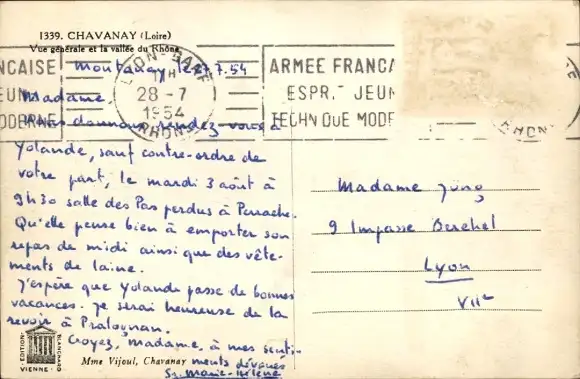 1339. CHAVANAY (Loire)
Vue générale et la vallée du Rhône
LYON-GARE
17H
28-7
1954
RHONE
NCAISE
EUN
ODERNE
ARMEE FRANCA
ESPRIT JEUN
TECHNIQUE MODE
RHONE
Montanay 27.7.54
Madame,
Nous donnons rendez-vous à
Yolande, sauf contre-ordre de
votre part, le mardi 3 août à
9h30 salle des Pas perdus à Perrache.
Qu'elle pense bien à emporter son
repas de midi ainsi que des vête-
ments de laine.
J'espère que Yolande passe de bonnes
vacances. Je serai heureuse de la
revoir à Pralognan.
Croyez, Madame, à mes senti-
ments dévoués
Sr Marie-Hélène
Madame Jüng
9 Impasse Berchet
Lyon
VIIe
EDITION
BLANCHARD
VIENNE
Mme Vijoul, Chavanay